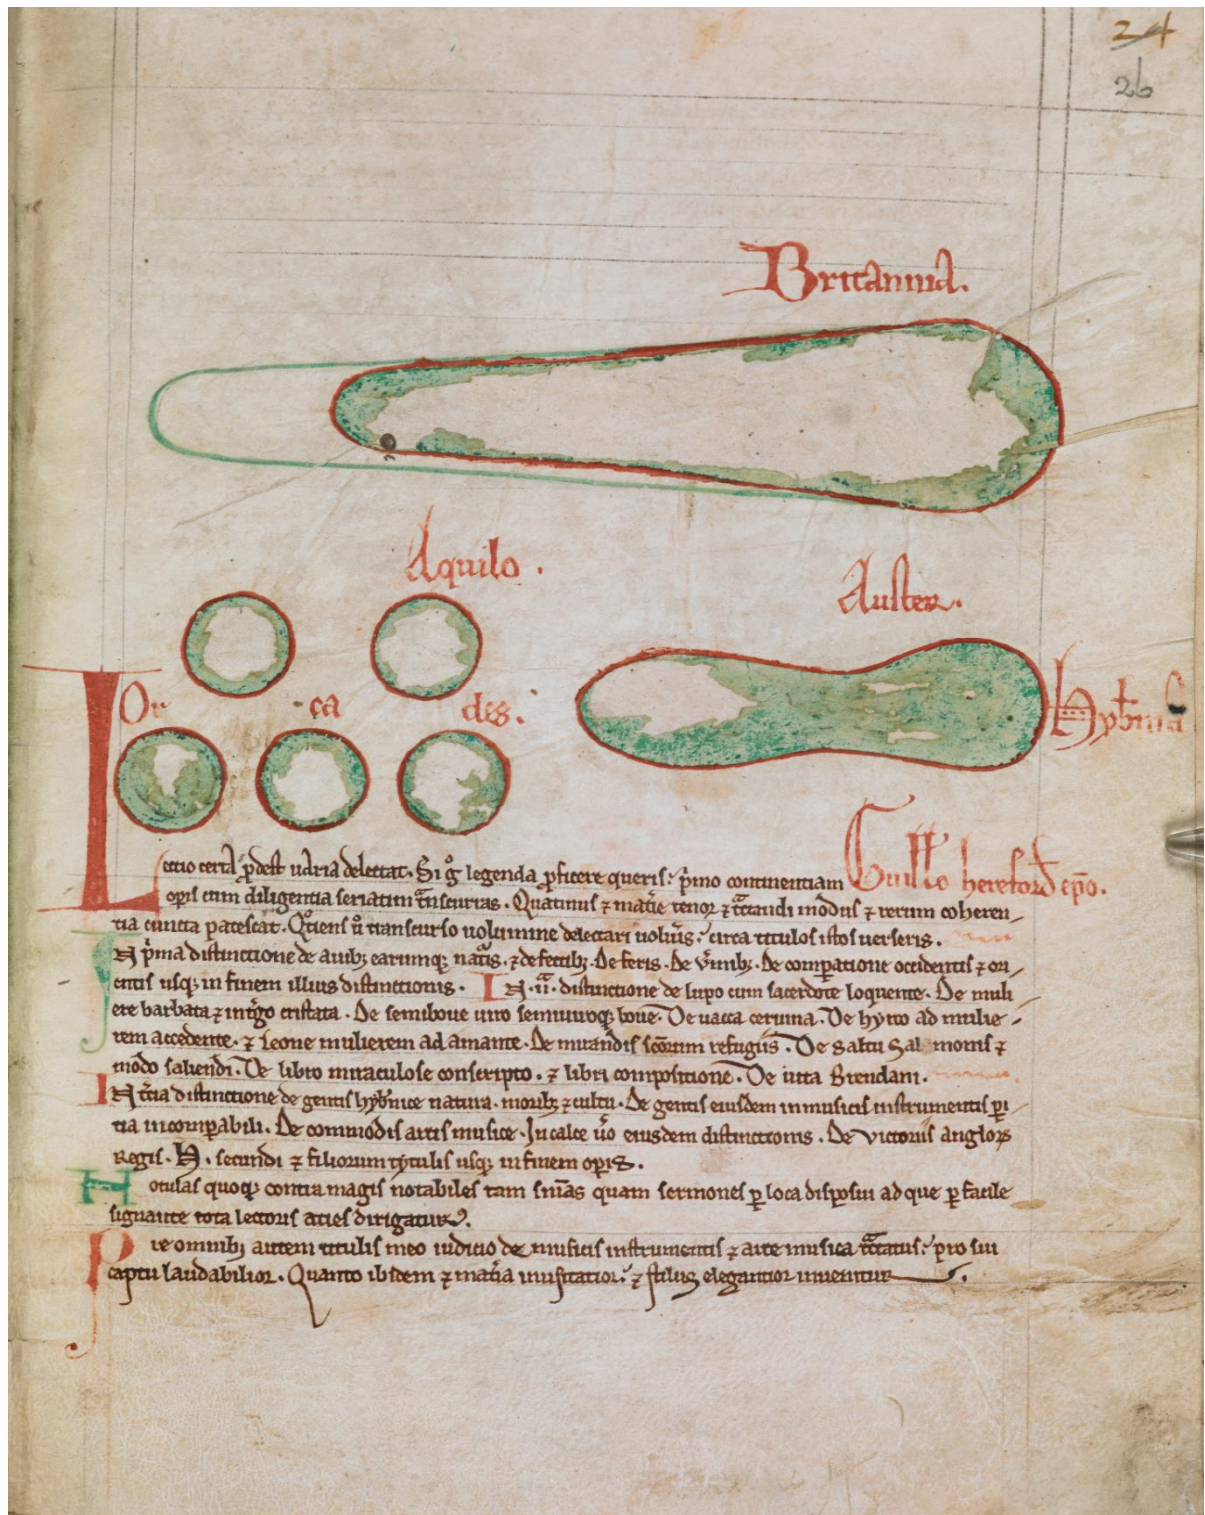 24
26
Britannia.
Aquilo.
Auster.
Or ca des.
Hyb̄nia
Guill̄o hereford̄ ep̄o.
Lectio certa ꝓdest uaria delectat. Si gͦ legenda ꝓficere queris: pͥmo continentiam
opͥs cum diligentia seriatim tͣnscurras. Quatinus ⁊ matͥe tenor ⁊ tͣctandi modus ⁊ rerum coheren
tia cuncta patescat. Qͦtiens u̇ transcurso uolumine delectari uoluͥs: circa titulos istos uerseris.
In pͥma distinctione de auibꝫ earumqꝫ natͥs. ⁊ defectibꝫ. De feris. De v̄mibꝫ. De comꝑatione occidentis ⁊ ori
entis usqꝫ in finem illius distinctionis. In .ii.ͣ distinctione de lupo cum sacerdote loquente. De muli
ere barbata ⁊ iuḡo cristata. De semiboue uiro semiuiroqꝫ boue. De uacca ceruina. De hyrco ad mulie
rem accedente. ⁊ leone mulierem adamante. De mirandis sc̄orum refugiis. De saltu Sal monis ⁊
modo saliendi. De libro miraculose conscripto. ⁊ libri compositione. De iurta Brendani.
In tc̄ia distinctione de gentis hyb̄nice natura. moribꝫ ⁊ cultu. De gentis eiusdem in musicis instrumentis ꝑi
tia incomꝑabili. De commodis artis musice. In calce u̇o eiusdem distinctionis. De victoriis angloꝝ
Regis. H. secundi ⁊ filiorum tytulis usqꝫ in finem opͥs.
Notulas quoqꝫ contra magis notabiles tam sn̄ias quam sermones ꝑ loca disposui ad que ꝑ facile
signante tota lectoris acies dirigatur.
Pre omnibꝫ autem titulis meo iudicio de musicis instrumentis ⁊ arte musica tͣctatus: pro sui
captu laudabilior. Quanto ibidem ⁊ matͥa inusitatior: ⁊ stilus elegantior inuenitur.